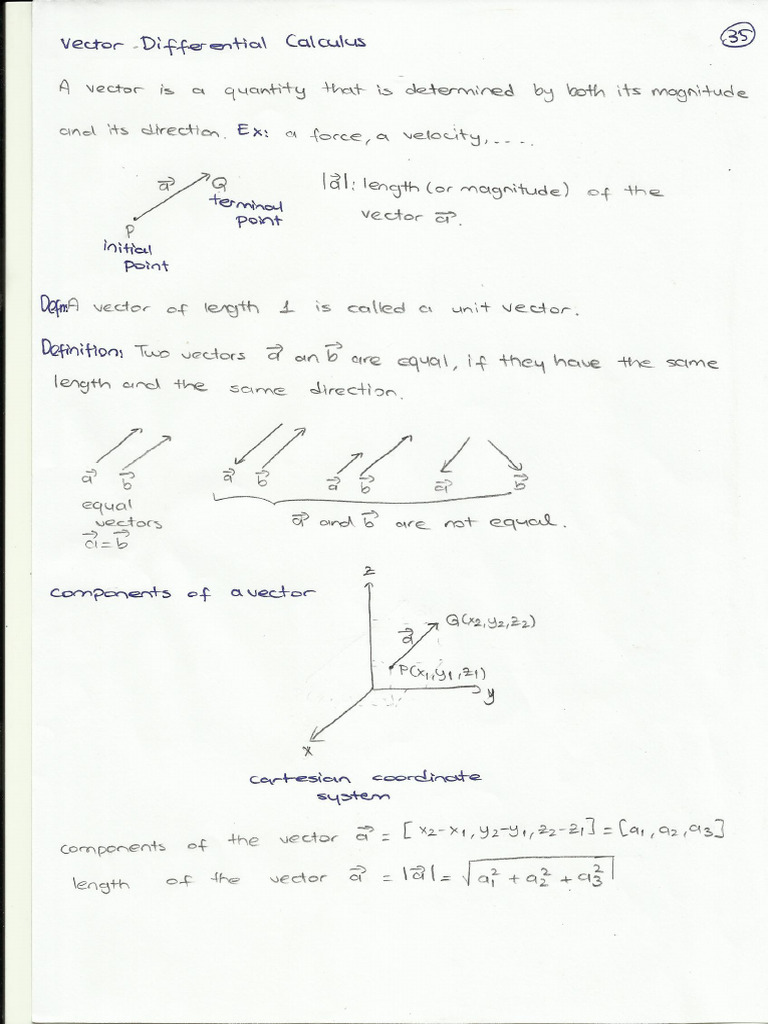 Vector Differential Calculus
35
A vector is a quantity that is determined by both its magnitude
and its direction. Ex: a force, a velocity,....
a⃗
Q
terminal
point
P
initial
point
|a⃗|: length (or magnitude) of the
vector a⃗.
Defn: A vector of length 1 is called a unit vector.
Definition: Two vectors a⃗ an b⃗ are equal, if they have the same
length and the same direction.
a⃗ b⃗ a⃗ b⃗ a⃗ b⃗ a⃗ b⃗
equal
vectors
a⃗ = b⃗
a⃗ and b⃗ are not equal.
components of a vector
z
a⃗
Q(x₂, y₂, z₂)
P(x₁, y₁, z₁)
y
x
cartesian coordinate
system
components of the vector a⃗ = [x₂-x₁, y₂-y₁, z₂-z₁] = [a₁, a₂, a₃]
length of the vector a⃗ = |a⃗| = √(a₁² + a₂² + a₃²)